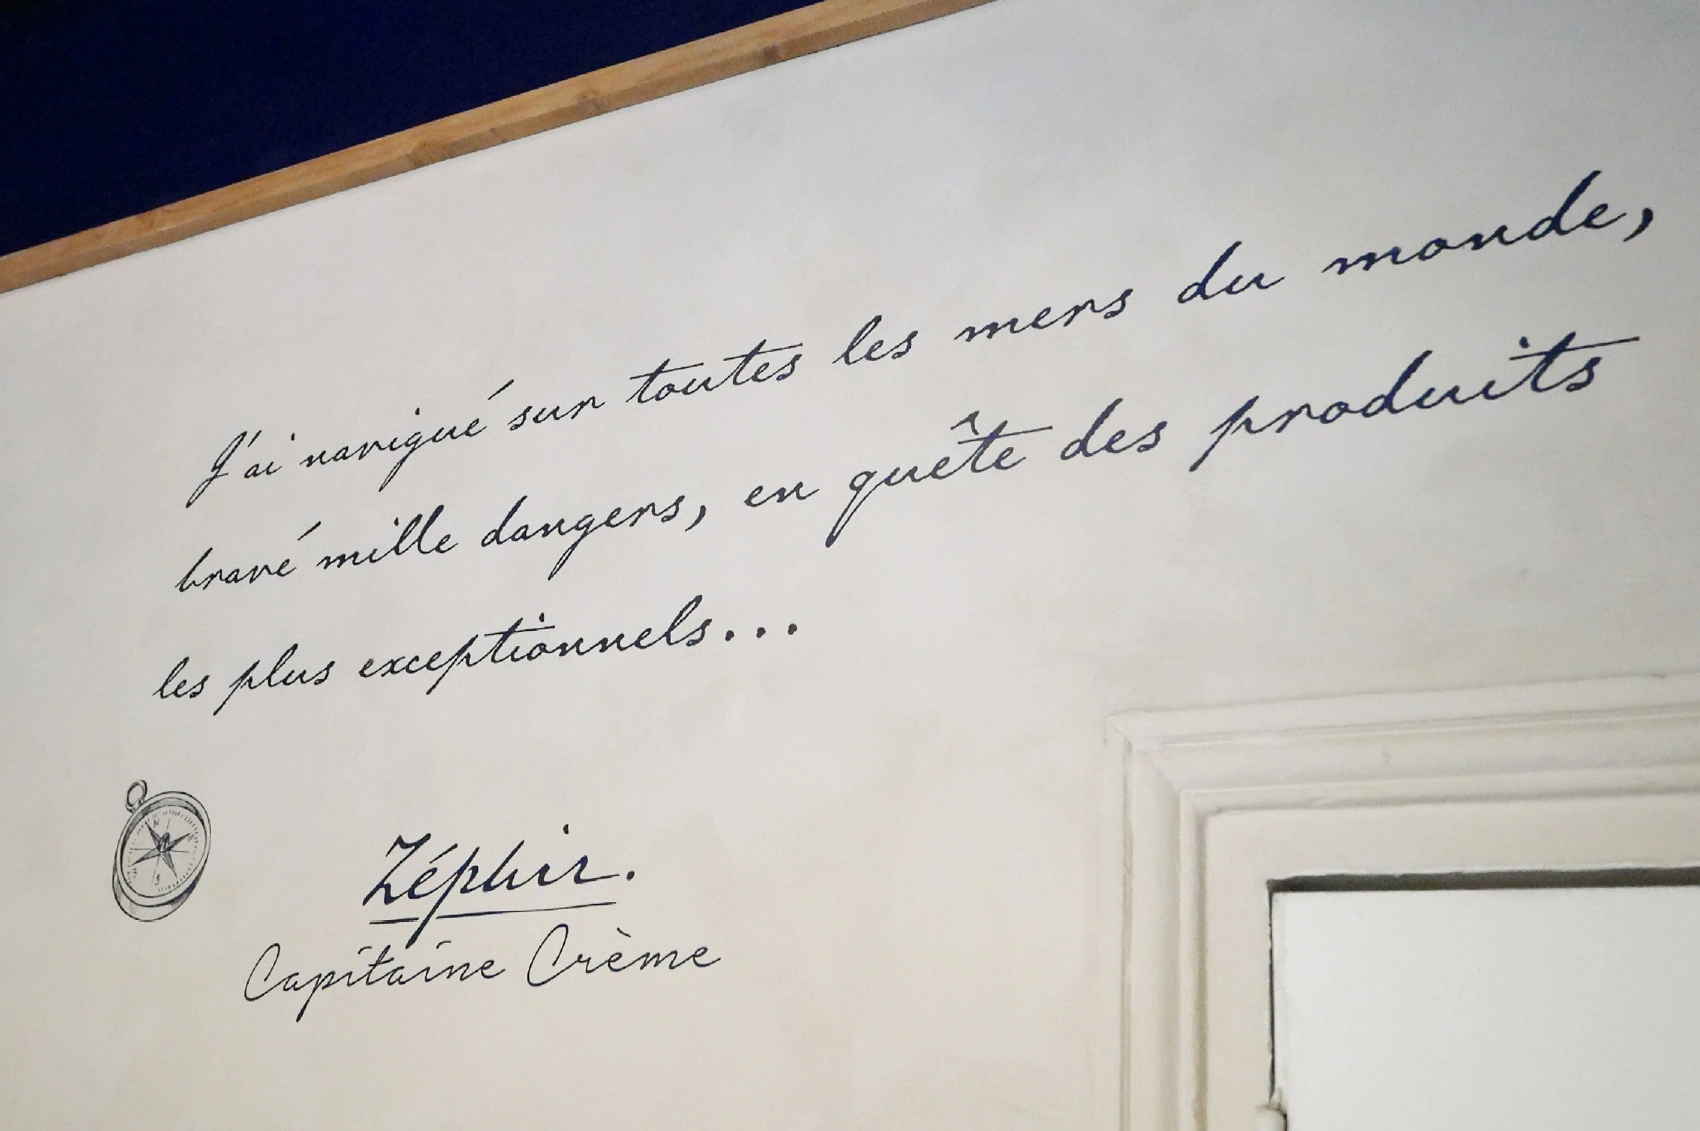 J'ai navigué sur toutes les mers du monde,
bravé mille dangers, en quête des produits
les plus exceptionnels...
Zéphir.
Capitaine Crème
N
E
S